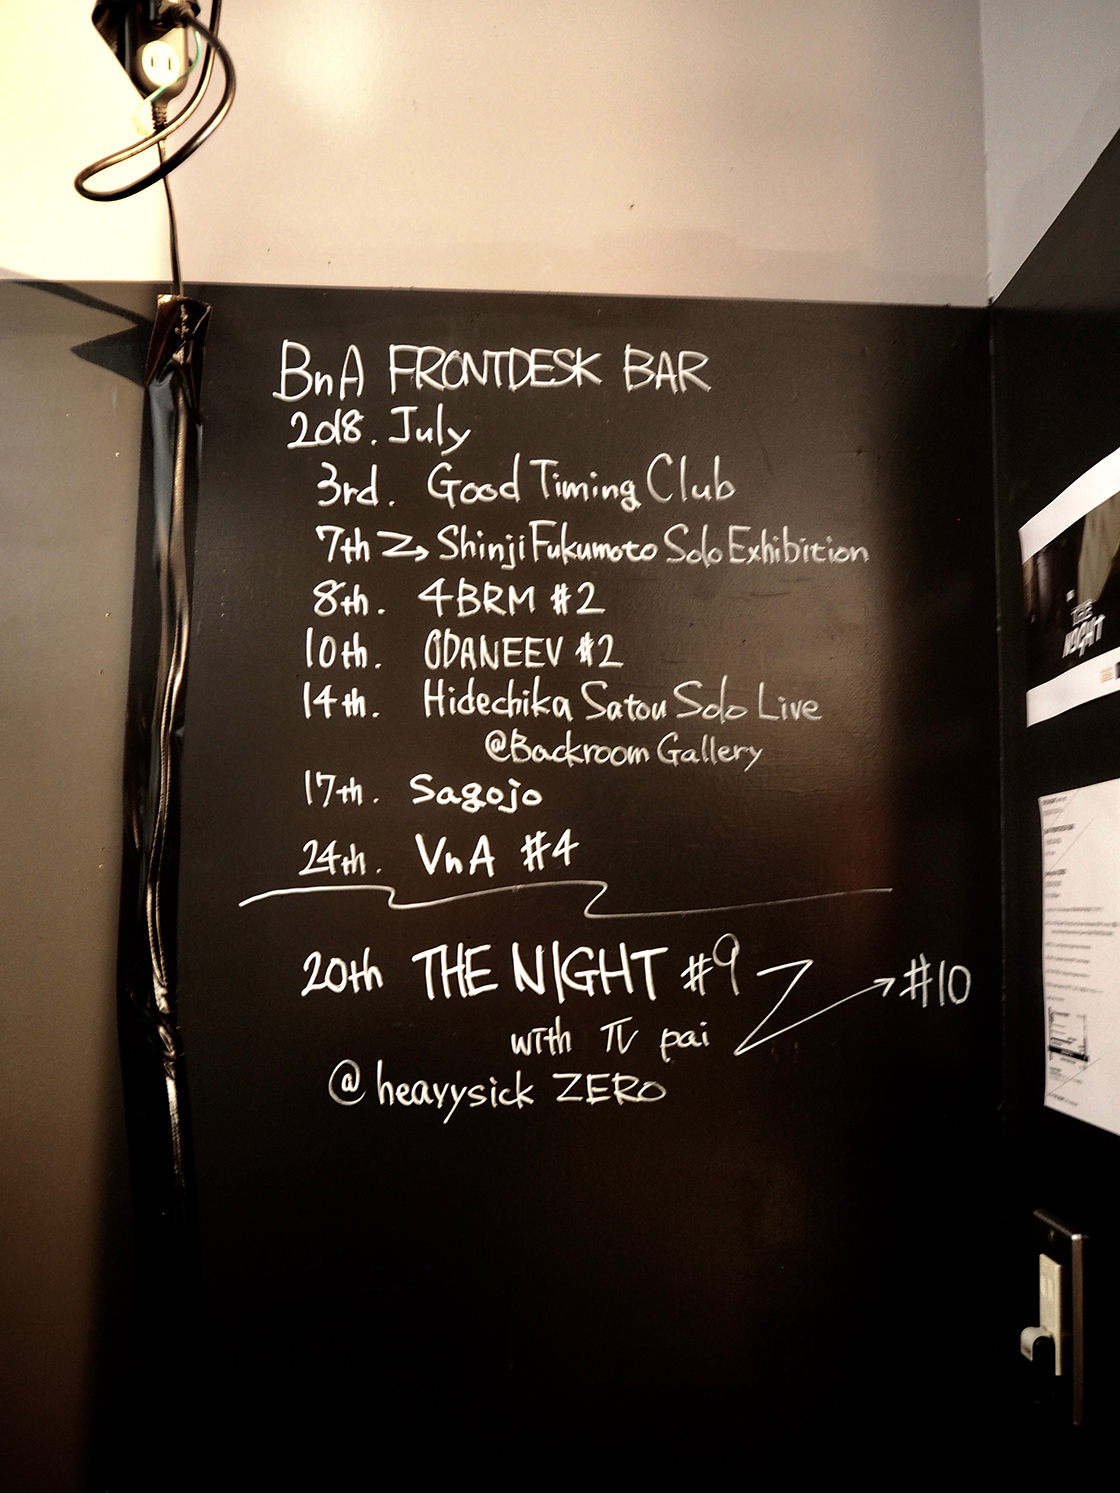 BnA FRONTDESK BAR
2018. July
3rd. Good Timing Club
7th → Shinji Fukumoto Solo Exhibition
8th. 4BRM #2
10th. ODANEEV #2
14th. Hidechika Satou Solo Live
@Backroom Gallery
17th. Sagojo
24th. VnA #4
20th THE NIGHT #9 → #10
with π pai
@ heavysick ZERO
THE
NIGHT